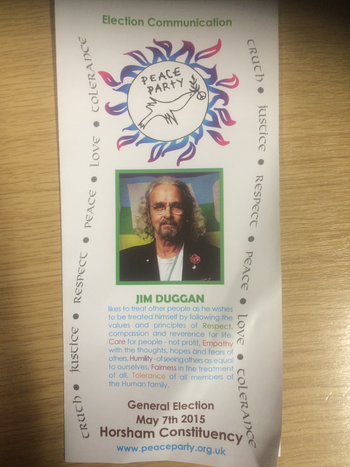 Election Communication
PEACE
PARTY
TRUTH • JUSTICE • RESPECT • PEACE • LOVE • TOLERANCE
TRUTH • JUSTICE • RESPECT • PEACE • LOVE • TOLERANCE
JIM DUGGAN
likes to treat other people as he wishes
to be treated himself by following the
values and principles of Respect,
compassion and reverence for life,
Care for people - not profit, Empathy
with the thoughts, hopes and fears of
others, Humility - of seeing others as equal
to ourselves, Fairness in the treatment
of all, Tolerance of all members of
the Human family.
General Election
May 7th 2015
Horsham Constituency
www.peaceparty.org.uk